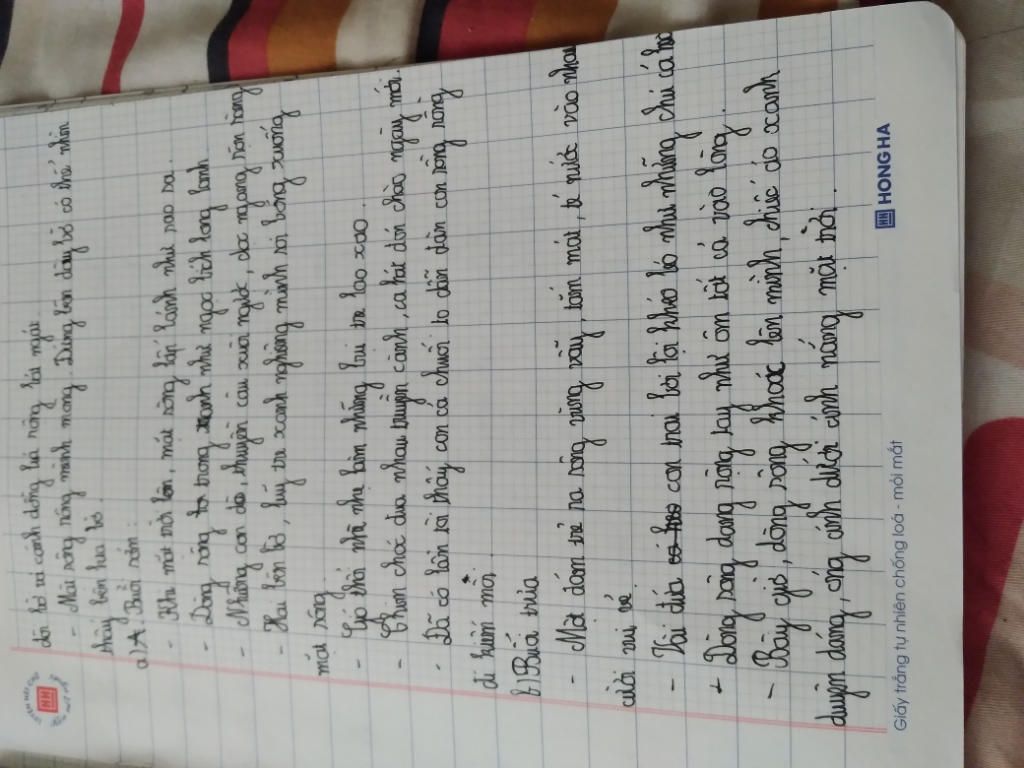 đôi bờ là cánh đồng lúa rộng bát ngát.
- Mặt sông rộng mênh mông. Đứng bên đây bờ có thể nhìn
thấy bên kia bờ.
a) A. Buổi sớm:
- Khi mặt trời lên, mặt sông lấp lánh như sao sa.
- Dòng sông trong xanh như ngọc bích long lanh.
- Những con đò, thuyền câu xuôi ngược, dọc ngang trên sông
- Hai bên bờ, lũy tre xanh nghiêng mình soi bóng xuống
mặt sông.
- Gió thổi nhè nhẹ làm những bụi tre lao xao.
- Chim chóc đua nhau chuyền cành, ca hát đón chào ngày mới.
- Đã có lần tôi thấy con cá chuối to dẫn đàn con ròng ròng
đi kiếm mồi.
b) Buổi trưa
- Một đám trẻ ra sông vùng vẫy, tắm mát, té nước vào nhau
cười vui vẻ.
- Vài đứa con trai bơi lội khéo léo như những chú cá heo
- Dòng sông dang rộng tay như ôm tất cả vào lòng.
- Bây giờ, dòng sông khoác lên mình, chiếc áo xanh
duyên dáng, óng ánh dưới ánh nắng mặt trời.
HH HONG HA
Giấy trắng tự nhiên chống loá - mỏi mắt